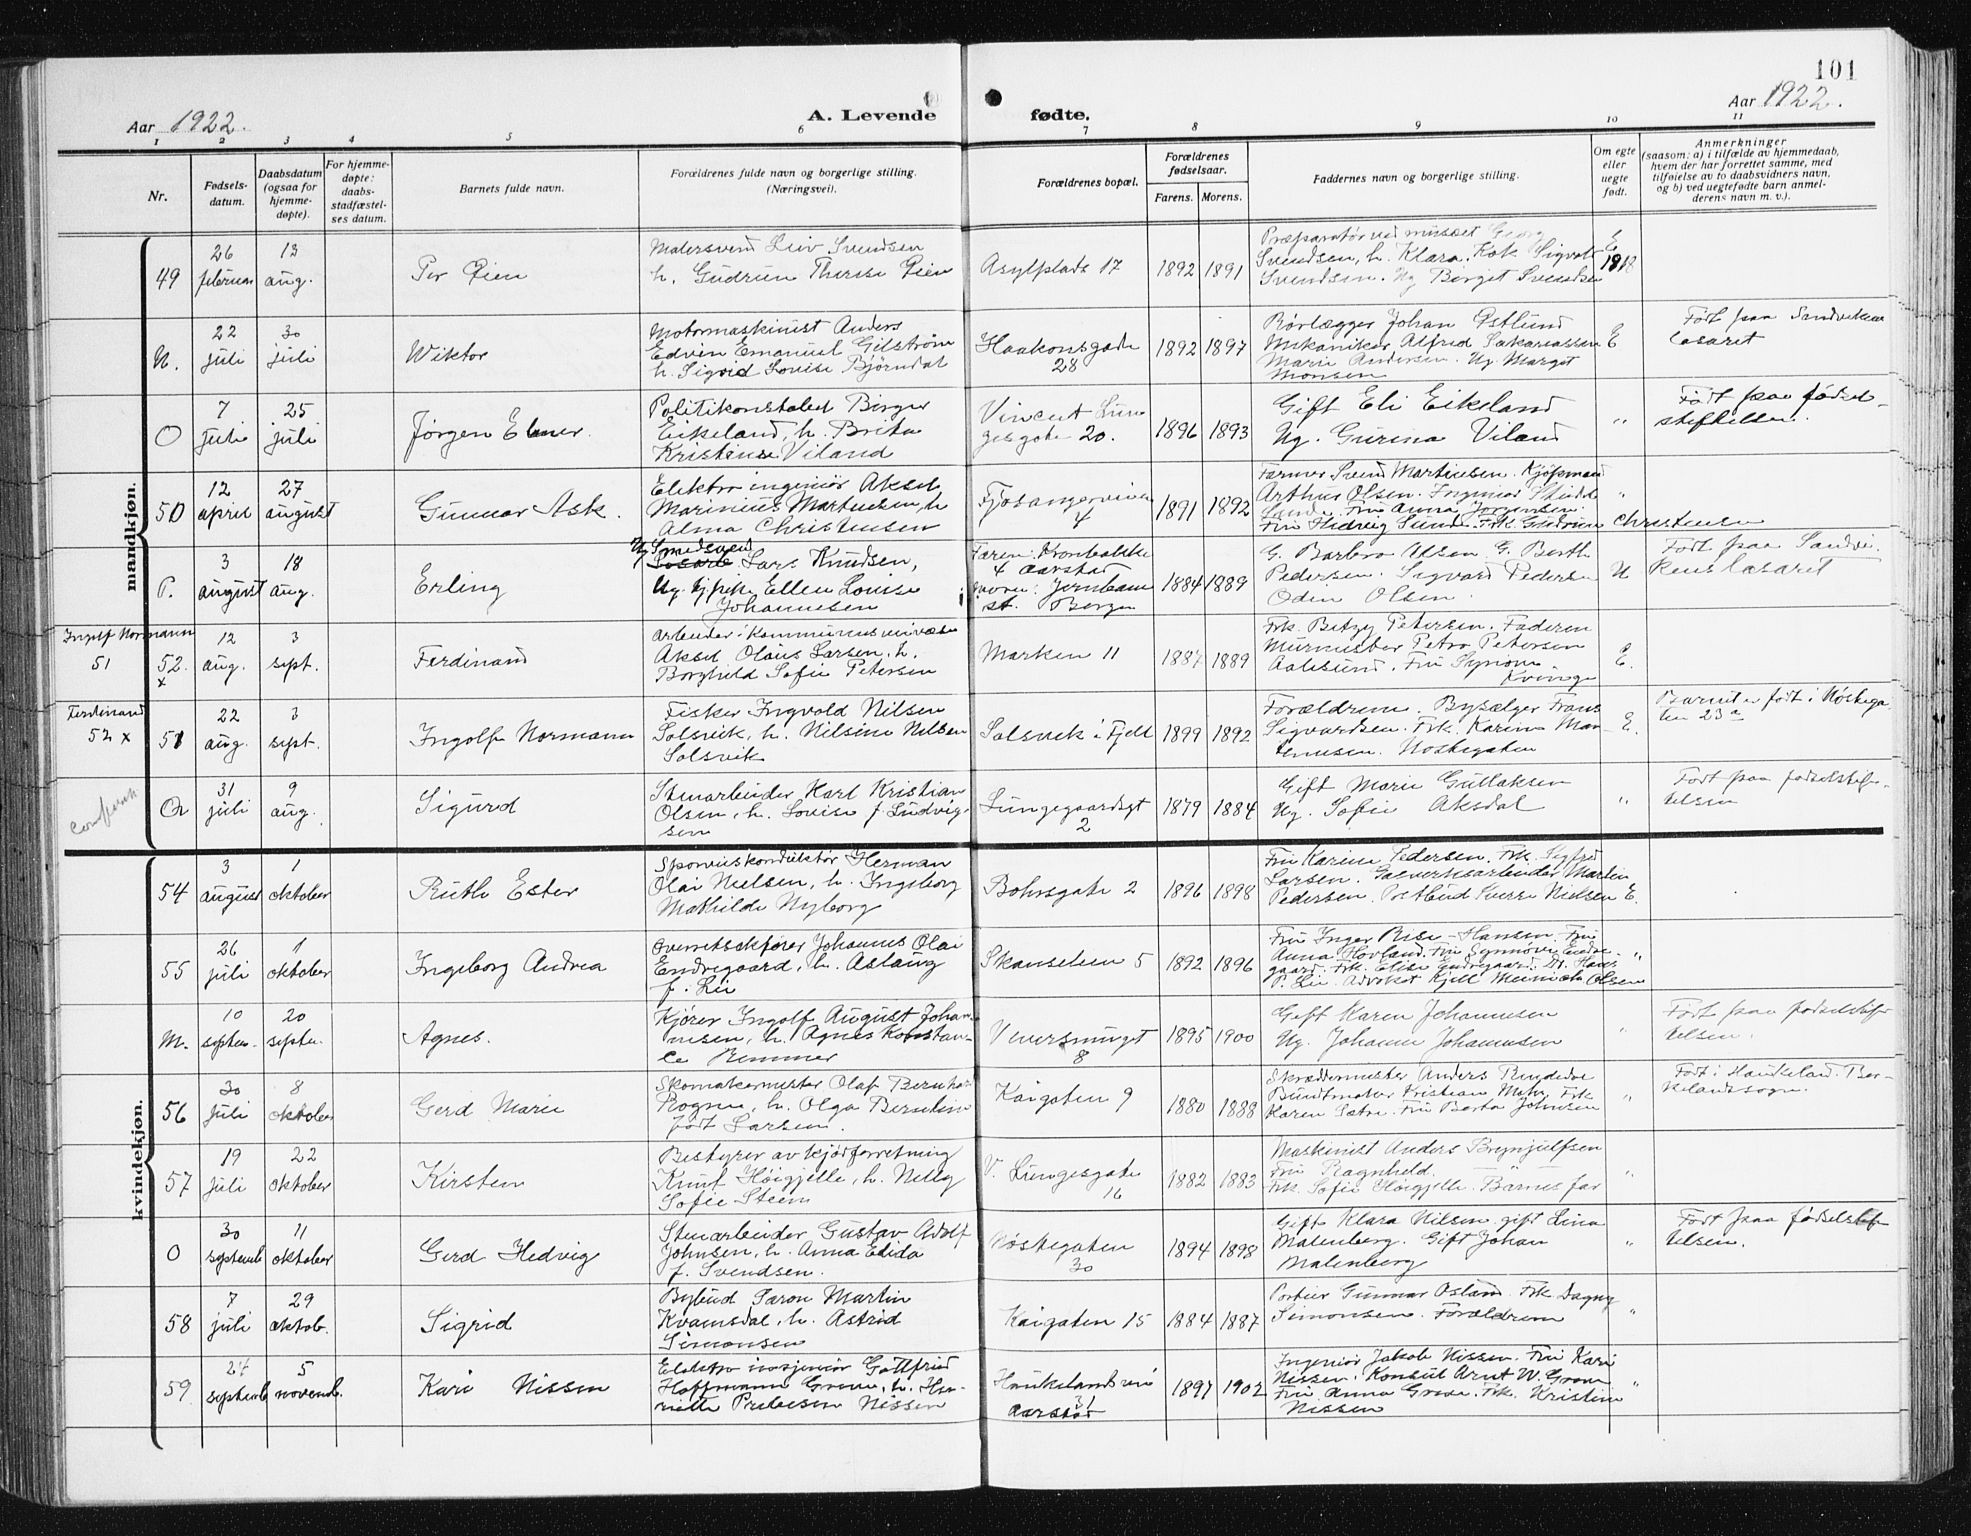 101
Aar 1922.
A. Levende
fødte.
Aar 1922.
1 2 3 4 5 6 7 8 9 10 11
Nr.
Fødsels-
datum.
Daabsdatum
(ogsaa for
hjemme-
døpte).
For hjemme-
døpte:
daabs-
stadfæstel-
ses datum.
Barnets fulde navn.
Forældrenes fulde navn og borgerlige stilling.
(Næringsvei).
Forældrenes bopæl.
Forældrenes
fødselsaar.
Farens. Morens.
Faddernes navn og borgerlige stilling.
Om egte
eller
uegte
født.
Anmerkninger
(saasom: a) i tilfælde av hjemmedaab,
hvem der har forrettet samme, med
tilføielse av to daabsvidners navn,
og b) ved uegtefødte barn anmel-
derens navn m. v.).
mandkjøn.
49
26
februar
13
aug.
Per Øien
Malersvend Leiv Svendsen
h. Gudrun Therese Øien
Asylplads 17
1892 1891
Præparatør ved museet Georg
Svendsen, h. Klara. Kok Sigvat
Svendsen. Ug. Birgit Svendsen
E
1918
N.
22
juli
30
juli
Wiktor
Motormaskinist Anders
Edvin Emanuel Gilstrøm
h. Sigrid Lovise Bjørndal
Haakonsgade
28
1892 1897
Rørlægger Johan Østlund
Mekaniker Alfred Sakariassen
Marie Andersen. Ug. Margit
Monsen
E
Født paa Sandviken
lasaret
O
7
juli
25
juli
Jørgen Elmer.
Politikonstabel Birger
Eikeland, h. Brita
Kristine Viland
Vincent Lun
gesgate 20.
1896 1893
Gift Eli Eikeland
Ug. Gurina Viland
"
Født paa fødsel-
stiftelsen.
50
12
april
27
august
Gunnar Ask.
Elektro ingeniør Aksel
Marinius Martinsen, h.
Alma Christensen
Fjøsangerveien
4
1891 1892
Farmer Svend Martinsen. Kjøpmand
Arthur Olsen. Ingeniør
Lunde. Fru Anna Jørgensen.
Fru Hedvig Lund. Frk. Gudrun Christensen
"
P.
3
august
18
aug.
Erling
Ug. Smedsvend
Lars Knudsen,
Ug. Ellen Lovise
Johannesen
Faren: Kronbakke
4 Aarstad
moren: Jernbane
st. Bergen
1884 1889
G. Barbro Olsen. G. Berth
Pedersen. Sigvard Pedersen
Oden Olsen.
U
Født paa Sandvi-
kens lasaret
Ingolf Normann
51
52.
x
12
aug.
3
sept.
Ferdinand
Arbeider i kommunens veivæsen
Aksel Olaus Larsen, h.
Borghild Sofie Petersen
Marken 11
1887 1889
Frk. Betzy Petersen. Faderen
Murmester Petro Petersen
Aalesund. Fru Synøve
Kvinge
E.
Ferdinand
52 x
51
22
aug.
3
sept.
Ingolf Normann
Fisker Ingvald Nilsen
Solsvik, h. Nilsine Nilsen
Solsvik
Solsvik i Fjell
1899 1892
Forældrene. Bysælger Frans
Sigvardsen. Frk. Karine Mar-
tinusen. Nøstegaten
E.
Barnet er født i Nøstega-
ten 23 a
Q
31
juli
9
aug.
Sigurd
Stenarbeider Karl Kristian
Olsen, h. Lovise f. Ludvig-
sen
Lungegaardsgt
2
1879 1884
Gift Marie Gullaksen
Ug. Sofie Aksdal
"
Født paa fødselstif-
telsen
kvindekjøn.
54
3
august
1
oktober
Ruth Ester
Sporveiskonduktør Herman
Olai Nielsen, h. Ingeborg
Mathilde Nyborg
Bohrsgate 2
1896 1898
Fru Karine Pedersen. Frk. Sigfrid
Larsen. Gasverksarbeider Martin
Pedersen. Postbud Sverre Nielsen
E.
55
26
juli
1
oktober
Ingeborg Andrea
Overretssakfører Johannes Olai
Endregaard, h. Aslaug
f. Lie
Skanselien 5
1892 1896
Fru Inger Riise-Hansen. Fru
Anna Hovland. Fru Synnøve Endre-
gaard. Frk. Elise Endregaard. Dr. Hans
P. Lie. Advokat Kjell Meinich Olsen
"
M.
10
septem-
20
septem-
Agnes.
Kjører Ingolf August Johan-
nesen, h. Agnes Konstan-
ce Remmer
Veversmuget
8
1895 1900
Gift Karen Johannesen
Ug. Johanne Johannesen
"
Født paa fødselstif-
telsen.
56
30
juli
8
oktober
Gerd Marie
Skomakermester Olaf Bernha-
Rogne, h. Olga Berntine
født Larsen.
Kaigaten 9
1880 1888
Skræddermester Anders
Buntmaker Kristian Mehr. Frk.
Karen Sætre. Fru Berta Johnsen
"
Født i Haukeland. Bir-
kelandssogn.
57
19
juli
22
oktober
Kirsten
Bestyrer av kjødforretning
Knut Høigjelle, h. Nelly
Sofie Steen
V. Lungesgate
16
1882 1883
Maskinist Anders Brynjulfsen
Fru Ragnhild.
Frk. Sofie Høigjelle. Barnets far
"
O
30
septemb
11
oktober
Gerd Hedvig
Stenarbeider Gustav Adolf
Johnsen, h. Anna Elida
f. Svendsen.
Nøstegaten
30
1894 1898
Gift Klara Nilsen gift Lina
Malenberg. Gift Johan
Malenberg
"
Født paa fødselstif-
telsen.
58
7
juli
29
oktob.
Sigrid
Bybud Saron Martin
Kvamsdal, h. Astrid
Simonsen
Kaigaten 15
1884 1887
Portier Gunnar Osland. Frk. Dagny
Simonsen. Forældrene
"
59
24
septemb
5
novemb.
Kari Nissen
Elektro ingeniør Gottfried
Hoffmann Grove, h. Hen-
riette Prebensen Nissen
Haukelandsvei
31
Aarstad
1897 1902
Ingeniør Jakob Nissen. Fru Kari
Nissen. Konsul Arnt W. Grove
Fru Anna Grove. Frk. Kristine
Nissen
"